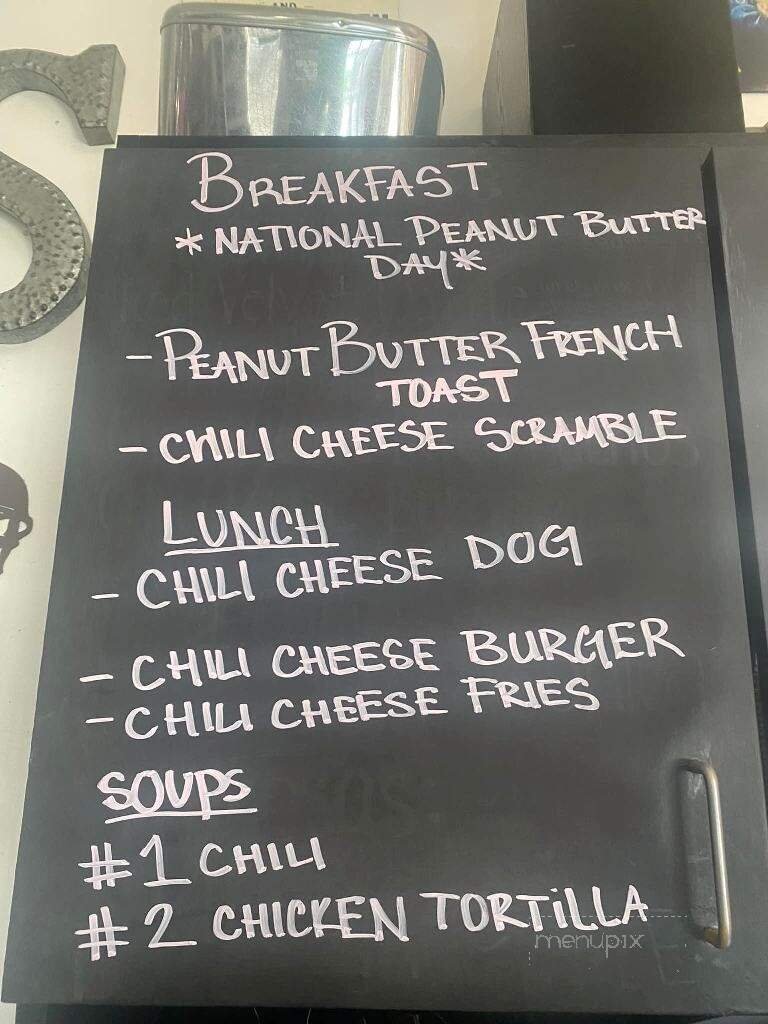 AND
BREAKFAST
*NATIONAL PEANUT BUTTER
DAY*
- PEANUT BUTTER FRENCH
TOAST
- CHILI CHEESE SCRAMBLE
LUNCH
- CHILI CHEESE DOG
- CHILI CHEESE BURGER
- CHILI CHEESE FRIES
SOUPS
#1 CHILI
#2 CHICKEN TORTiLLA
menupix